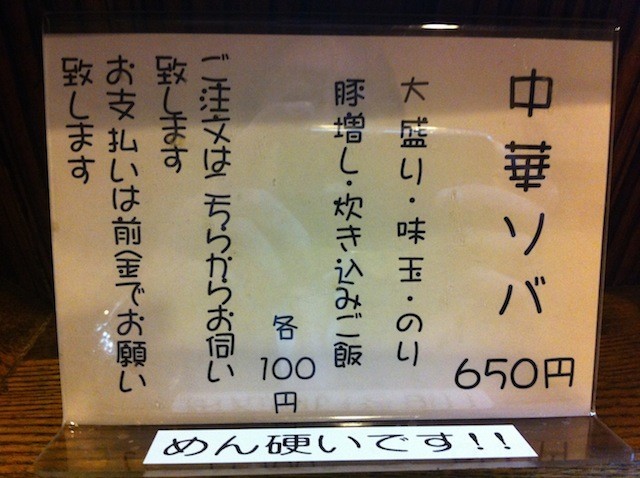 中華ソバ
650円
大盛り・味玉・のり
豚増し・炊き込みご飯
各
100
円
ご注文はこちらからお伺い
致します
お支払いは前金でお願い
致します
めん硬いです!!